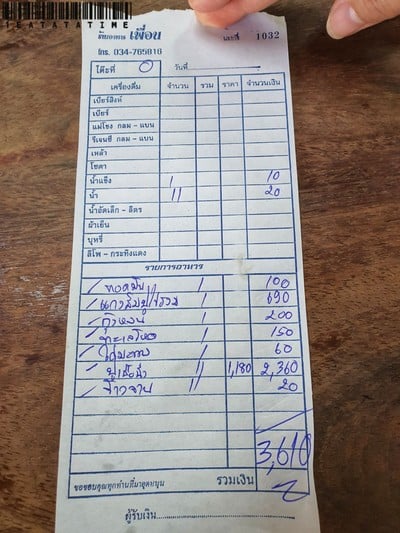 1EATATATIME
ร้านอาหาร เพื่อน
โทร. 034-765016
เล่มที่ 1032
โต๊ะที่ 0 วันที่
เครื่องดื่ม จำนวน รวม ราคา จำนวนเงิน
เบียร์สิงห์
เบียร์
แม่โขง กลม - แบน
รีเจนซี่ กลม - แบน
เหล้า
โซดา
น้ำแข็ง 1 10
น้ำ 11 20
น้ำอัดเล็ก - ลิตร
ผ้าเย็น
บุหรี่
ลิโพ - กระทิงแดง
รายการอาหาร
ทอดมัน 1 100
แกงส้ม 1 690
1 200
ทะเล 1 150
ไข่ 1 60
ปูนึ่ง 11 1,180 2,360
ข้าวจาน 11 20
3,610
ขอขอบคุณทุกท่านที่มาอุดหนุน รวมเงิน
ผู้รับเงิน